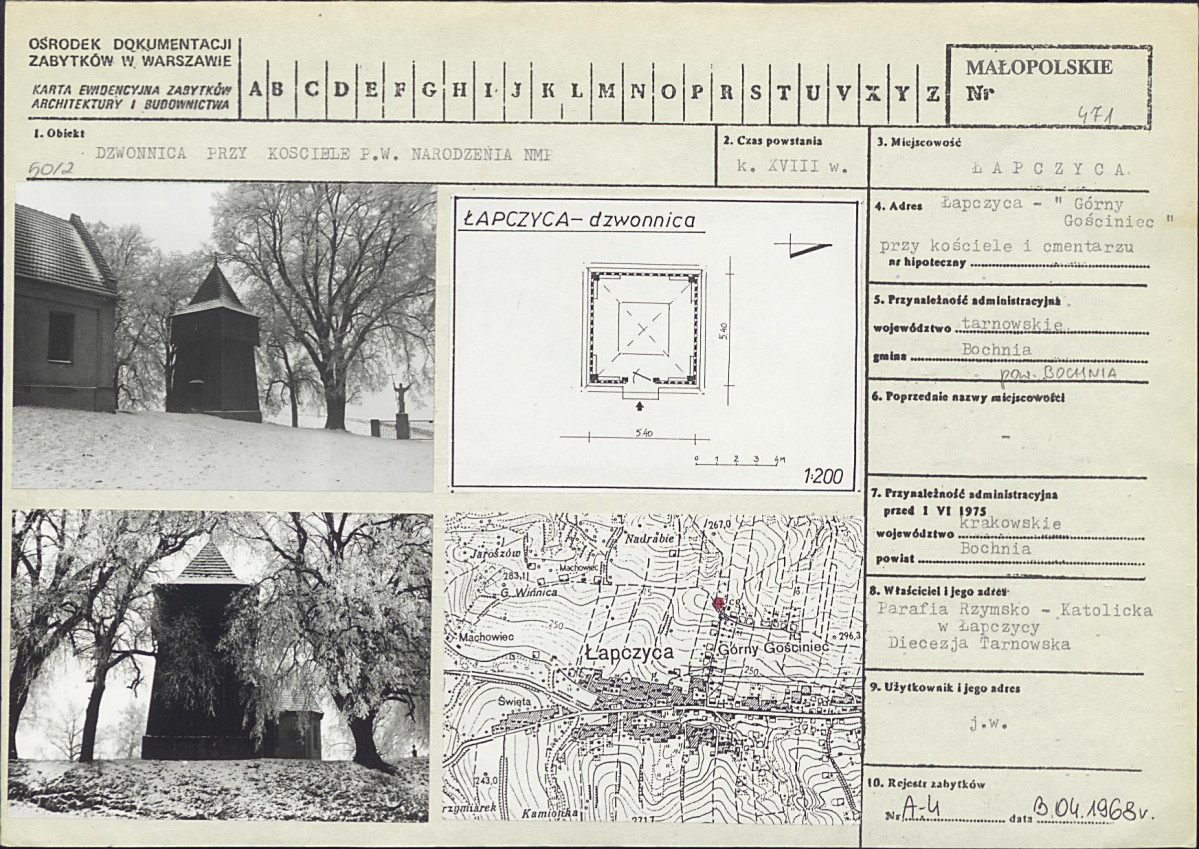 OŚRODEK DOKUMENTACJI
ZABYTKÓW W WARSZAWIE
KARTA EWIDENCYJNA ZABYTKÓW
ARCHITEKTURY I BUDOWNICTWA
A B C D E F G H I J K L M N O P R S T U V X Y Z
MAŁOPOLSKIE
Nr
471
1. Obiekt
DZWONNICA PRZY KOSCIELE P.W. NARODZENIA NMP
50/2
2. Czas powstania
k. XVIII w.
3. Miejscowość
ŁAPCZYCA
4. Adres Łapczyca - " Górny
Gościniec "
przy kościele i cmentarzu
nr hipoteczny
5. Przynależność administracyjna
województwo tarnowskie
gmina Bochnia
pow. BOCHNIA
6. Poprzednie nazwy miejscowości
-
7. Przynależność administracyjna
przed 1 VI 1975
województwo krakowskie
powiat Bochnia
8. Właściciel i jego adres
Parafia Rzymsko - Katolicka
w Łapczycy
Diecezja Tarnowska
9. Użytkownik i jego adres
j.w.
10. Rejestr zabytków
Nr A-4 data 3.04.1968r.
ŁAPCZYCA - dzwonnica
5.40
5.40
0 1 2 3 4M
1:200
267,0
Nadrabie
Jaroszów
Machowiec
283,1
G. Winnica
250
Machowiec
296,3
Łapczyca
Górny Gościniec
250
Święta
243,0
rzymiarek
Kamionka
271,7